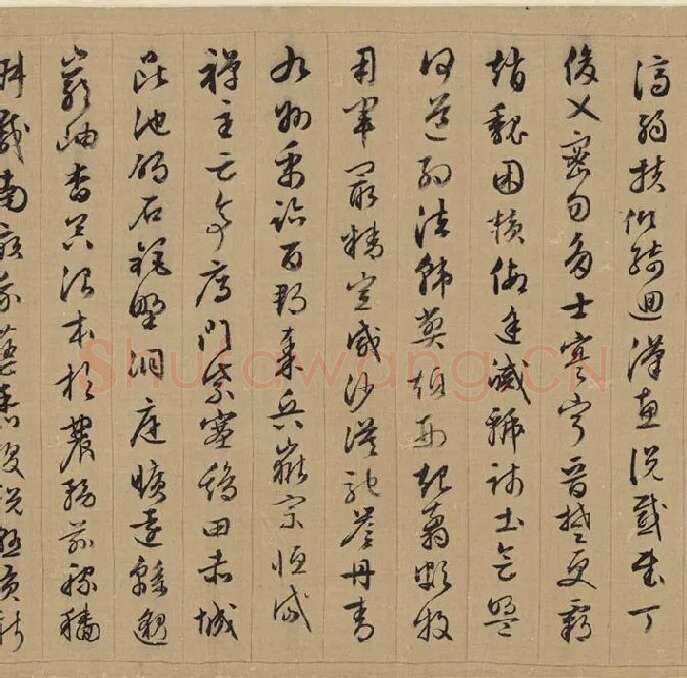 濟弱扶傾綺回漢惠說感武丁
俊乂密勿多士寔寧晉楚更霸
趙魏困橫假途滅虢踐土會盟
何遵約法韓弊煩刑起翦頗牧
用軍最精宣威沙漠馳譽丹青
九州禹跡百郡秦并嶽宗恆岱
禪主云亭雁門紫塞雞田赤城
昆池碣石鉅野洞庭曠遠緜邈
巖岫杳冥治本於農務茲稼穡
俶載南畝我藝黍稷稅熟貢新
Shufawang.CN